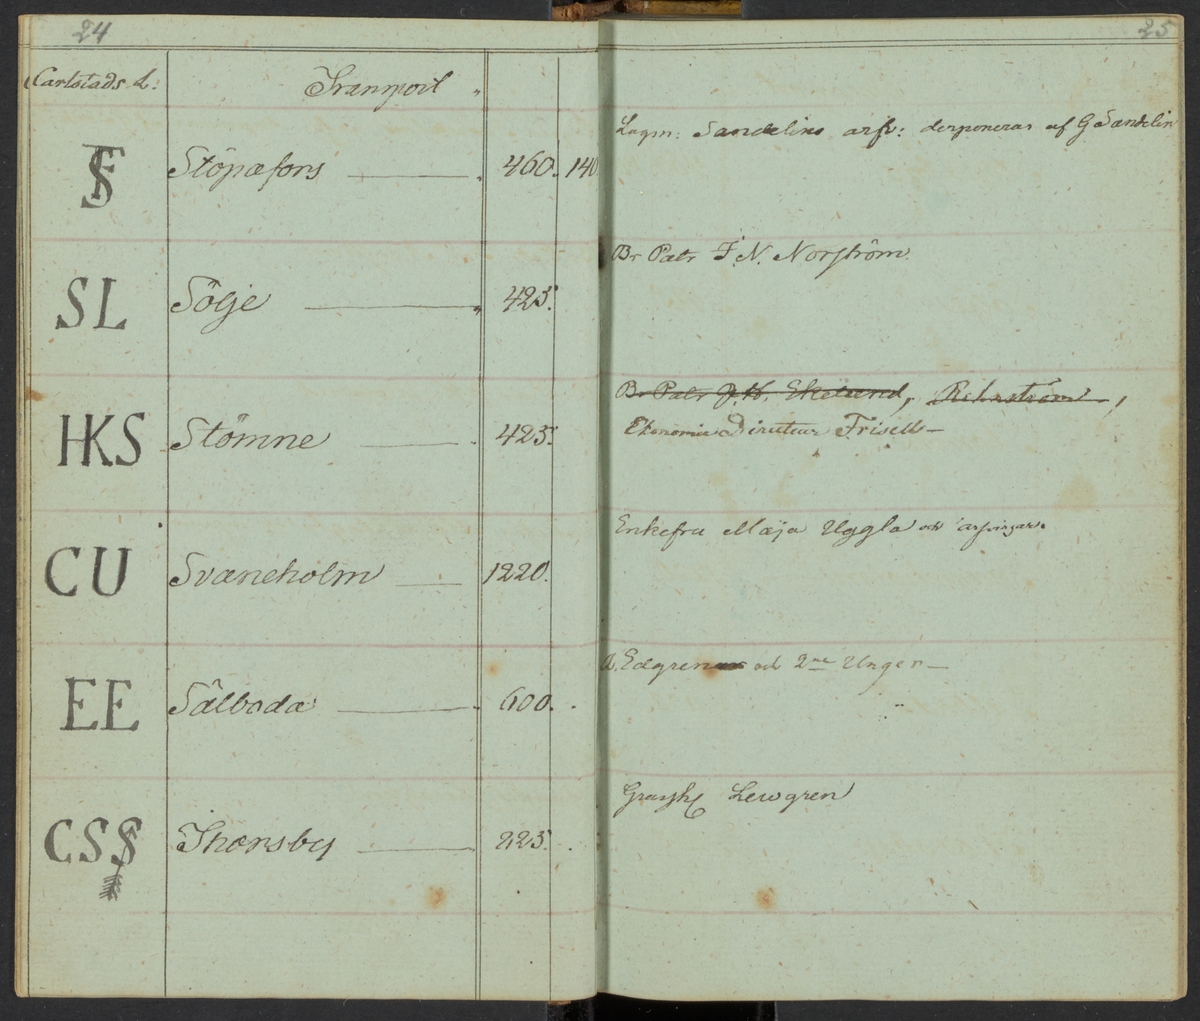 24
25
Carlstads L:
Transport "
Lagm: Sandelins arfv: derponeras af G Sandelin
SF Stöpafors 460. 140
Br Patr F. N. Norström
SL Sölje 425.
Br Patr Ekelund, ,
HKS Stömne 425.
Ekonomie Directeur Frisell
Enkefru Maja Uggla och arfvingar.
CU Svaneholm 1220.
A. Edgren och 2ne Unger
EE Sälboda 600.
Lewgren
CSS Thorsby 225.